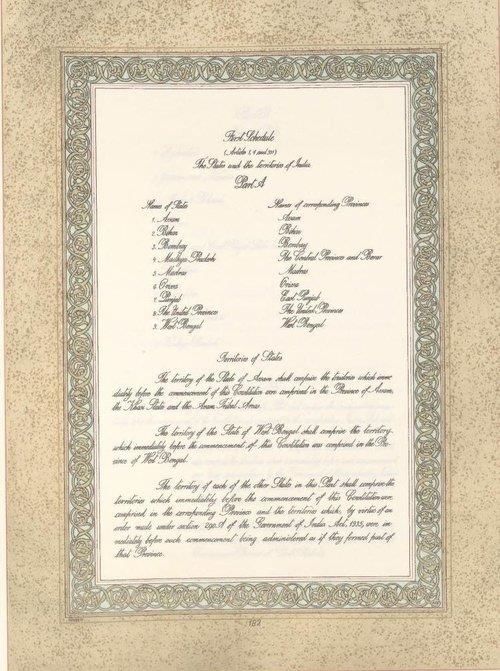 First Schedule
(Articles 1, 4 and 391)
The States and the territories of India
Part A
Names of States Names of corresponding Provinces
1. Assam Assam
2. Bihar Bihar
3. Bombay Bombay
4. Madhya Pradesh The Central Provinces and Berar
5. Madras Madras
6. Orissa Orissa
7. Punjab East Punjab
8. The United Provinces The United Provinces
9. West Bengal West Bengal
Territories of States
The territory of the State of Assam shall comprise the territories which imme-
diately before the commencement of this Constitution were comprised in the Province of Assam,
the Khasi States and the Assam Tribal Areas.
The territory of the State of West Bengal shall comprise the territory
which immediately before the commencement of this Constitution was comprised in the Pro-
vince of West Bengal.
The territory of each of the other States in this Part shall comprise the
territories which immediately before the commencement of this Constitution were
comprised in the corresponding Province and the territories which, by virtue of an
order made under section 290-A of the Government of India Act, 1935, were im-
mediately before such commencement being administered as if they formed part of
that Province.
182